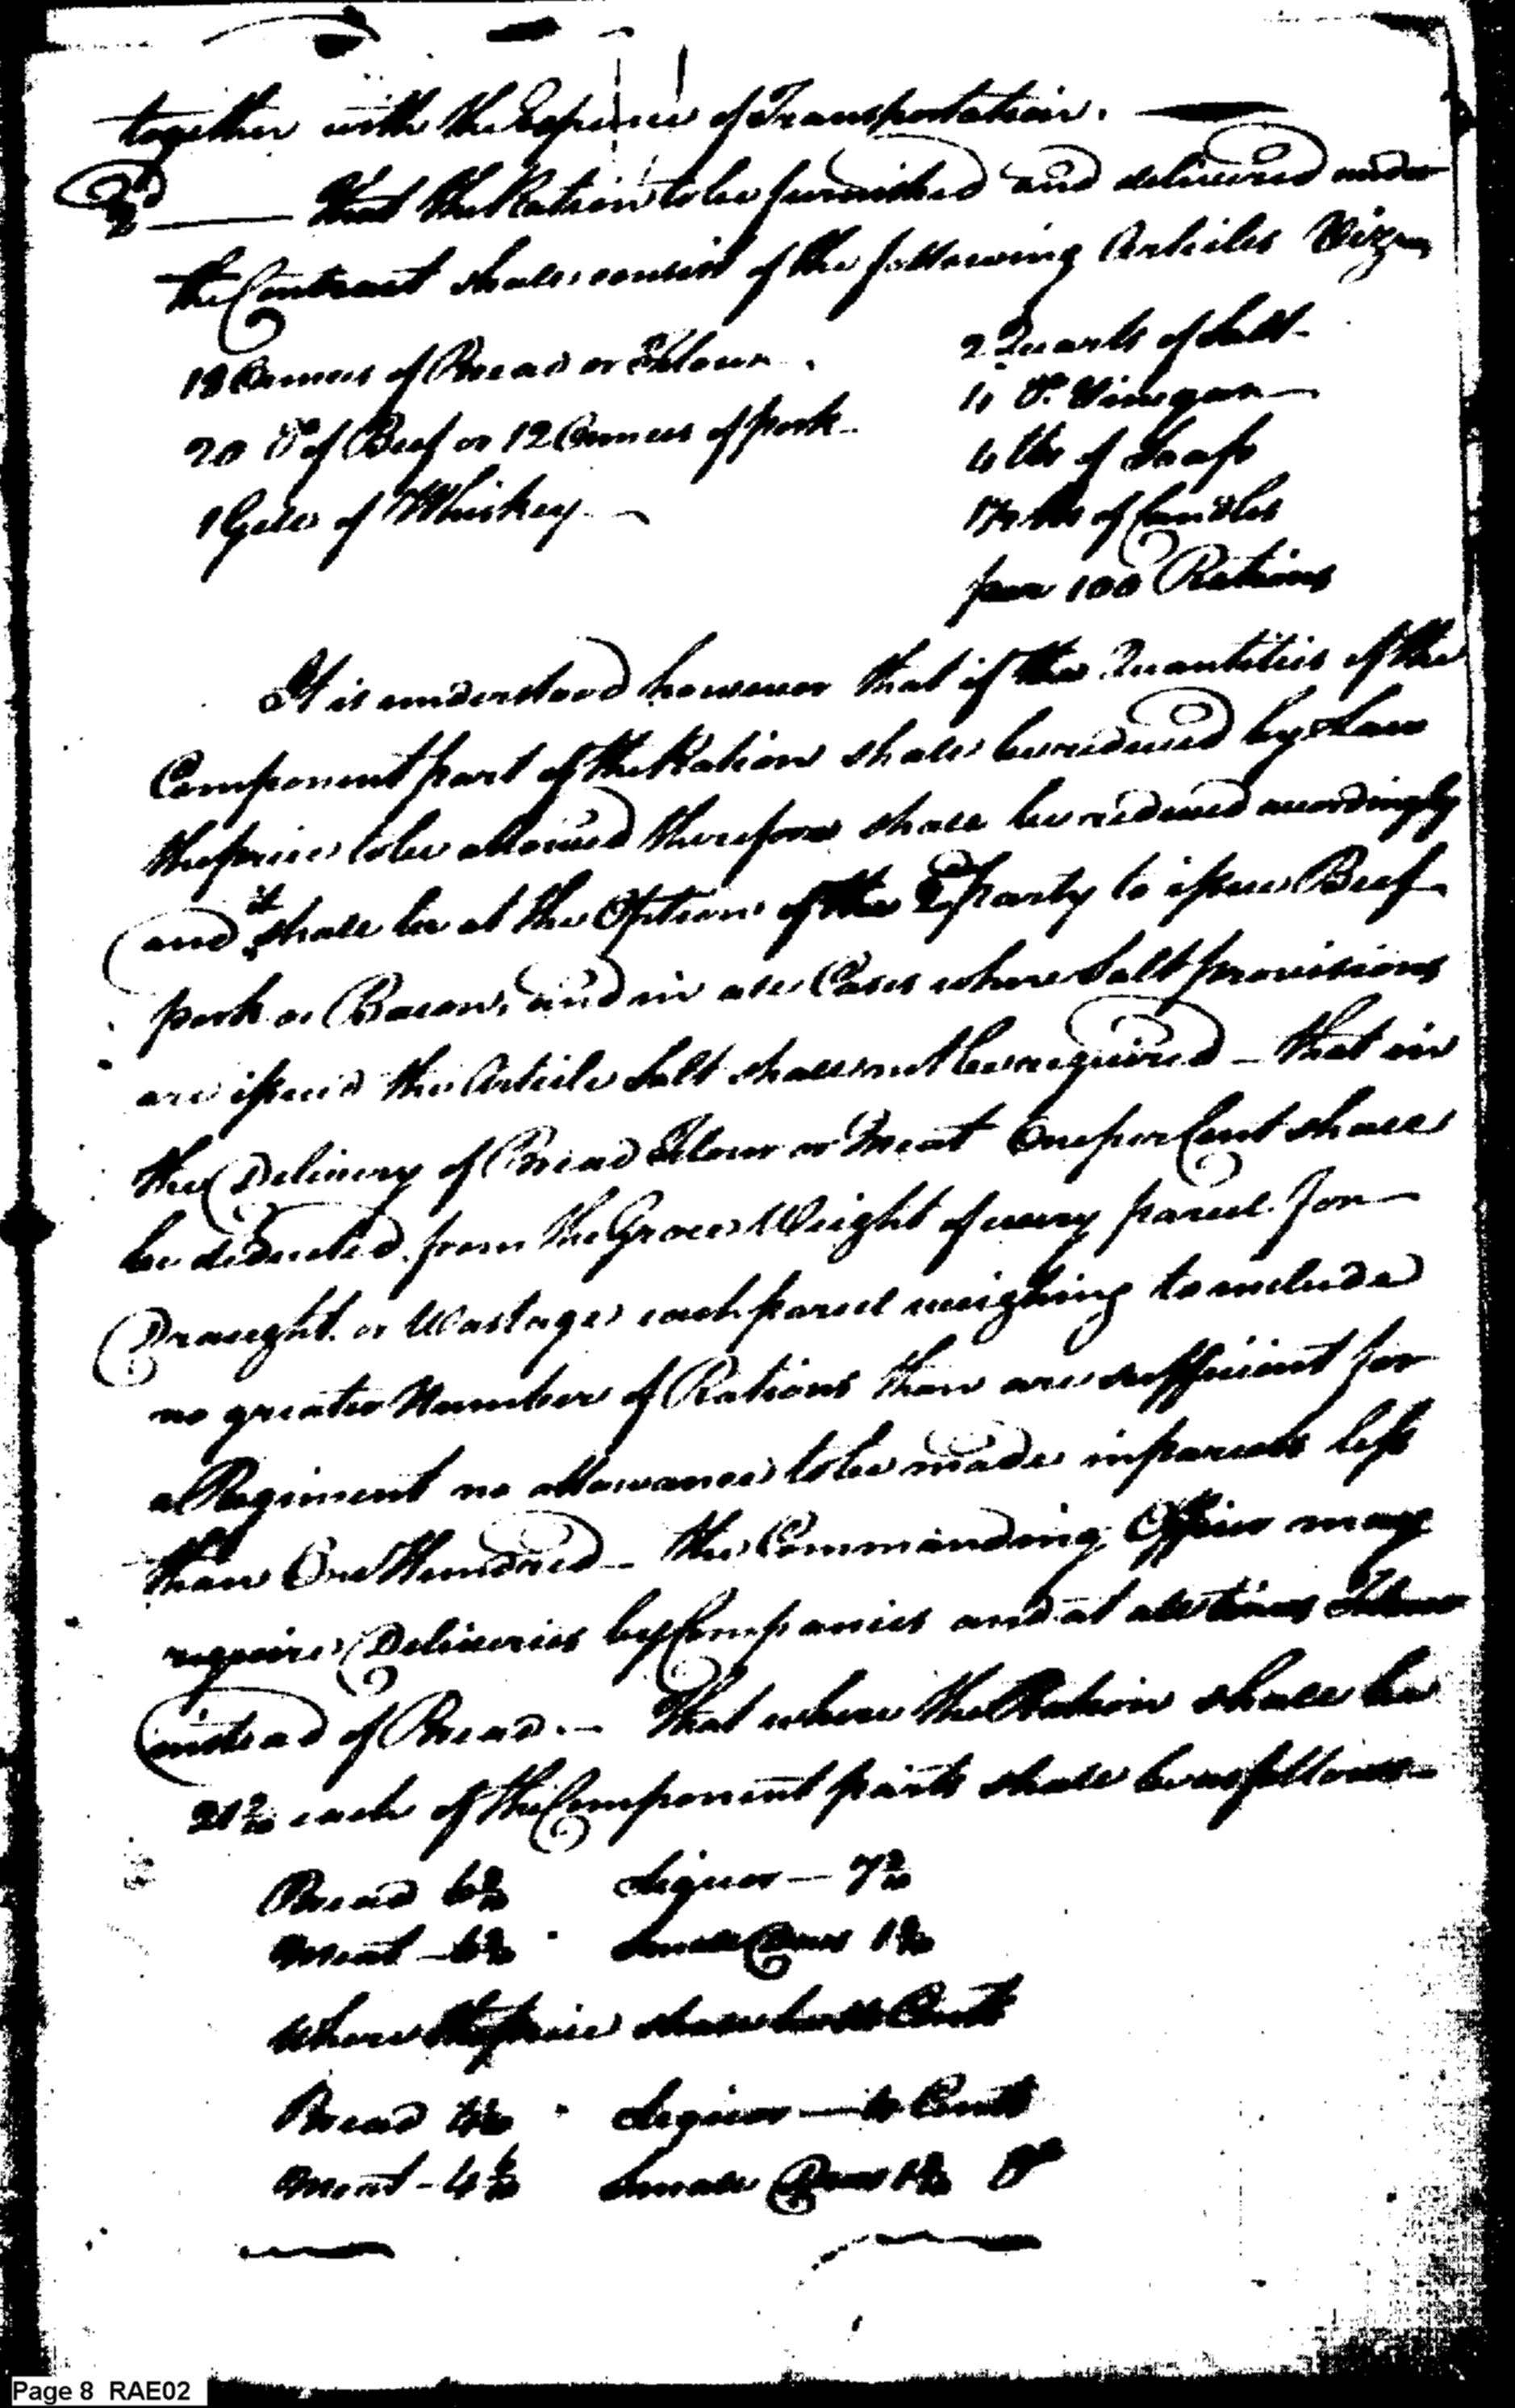 together with the Expence of Transportation.
3d — That the Ration to be furnished and delivered under
the Contract shall consist of the following Articles Viz
18 Ounces of Bread or Flour
20 Do of Beef or 12 Ounces of pork
1 Gill of Whiskey
2 Quarts of Salt
4 Do Vinegar
4 lbs of Soap
1½ lbs of Candles
per 100 Rations
It is understood however that if the Quantities of the
Component part of the Ration shall be reduced by Law
the price to be allowed therefore shall be reduced accordingly
and it shall be at the Option of the party to issue Beef
pork or Bacon, and in all Cases where Salt provisions
are issued the Article Salt shall not be required – that in
the Delivery of Bread Flour or Meat One per Cent shall
be deducted from the Gross Weight of every parcel for
Draught or Wastage each parcel weighing to include
no greater Number of Rations than are sufficient for
a Regiment no allowance to be made in parcels less
than One Hundred – the Commanding Officer may
require Deliveries by Companies and at all times Flour
instead of Bread. – That where the Ration shall be
each of the Component parts shall be as follows
Bread Liquor –
Meat – Small
Where the price shall be Cents
Bread Liquor — Cents
Meat – Small Do
Page 8 RAE02